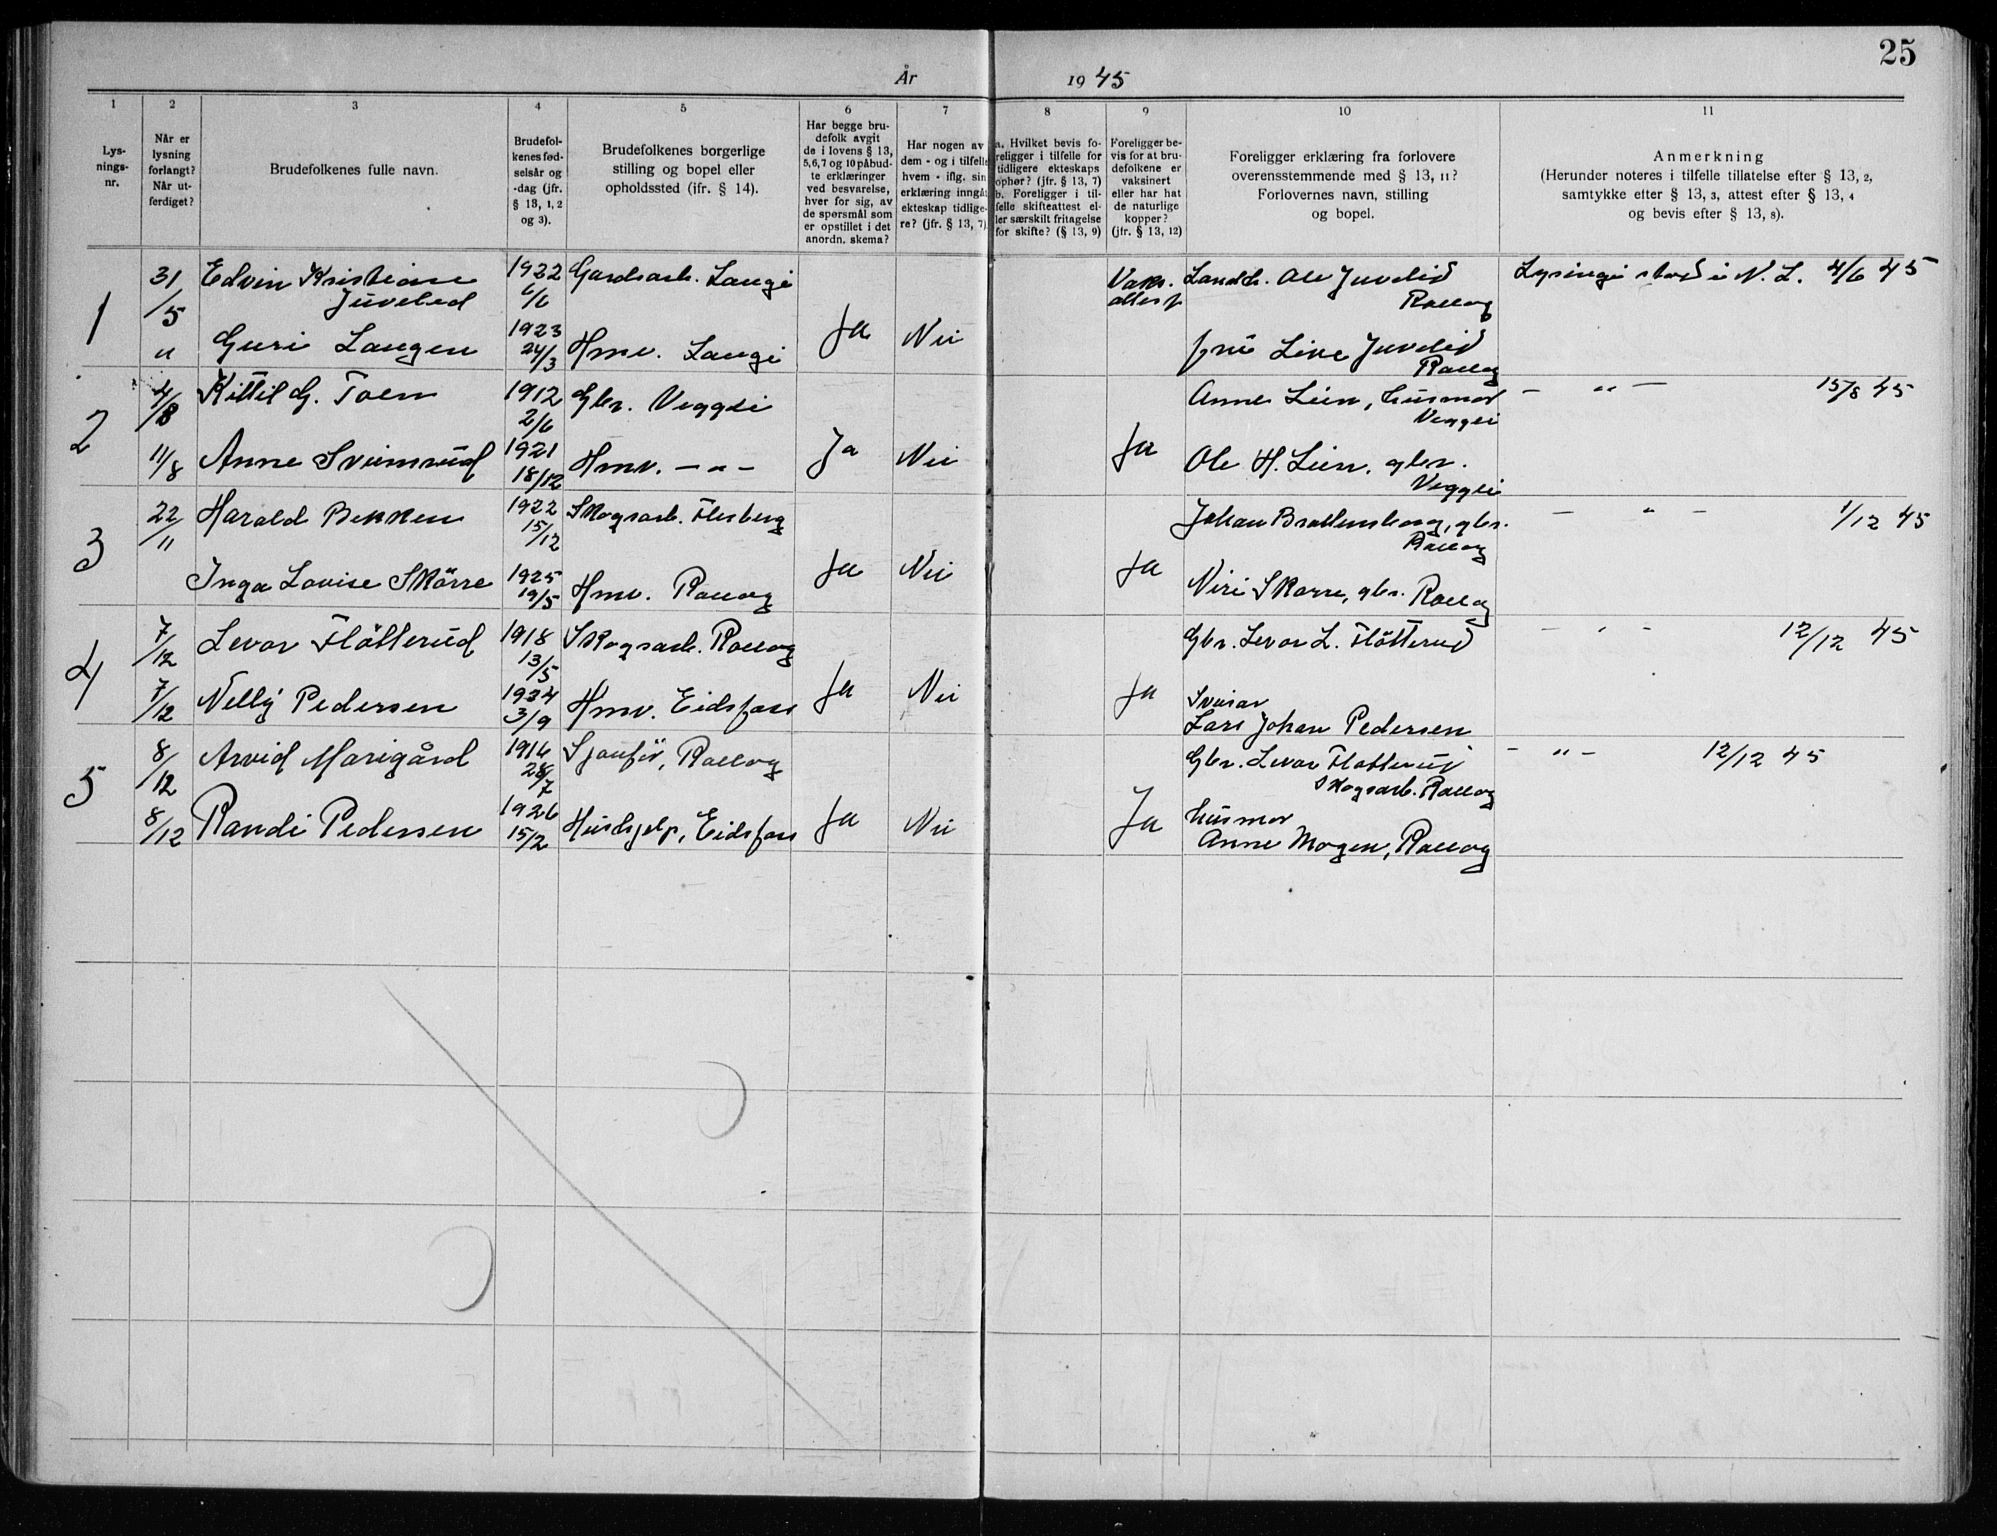 25
År 1945
1
2
3
4
5
6
7
8
9
10
11
Lys-
nings-
nr.
Når er
lysning
forlangt?
Når ut-
ferdiget?
Brudefolkenes fulle navn.
Brudefol-
kenes fød-
selsår og
-dag (jfr.
§ 13, 1, 2
og 3).
Brudefolkenes borgerlige
stilling og bopel eller
opholdssted (ifr. § 14).
Har begge bru-
defolk avgit
de i lovens § 13,
5, 6, 7 og 10 påbud-
te erklæringer
ved besvarelse,
hver for sig, av
de spørsmål som
er opstillet i det
anordn. skema?
Har nogen av
dem - og i tilfelle
hvem - iflg. sin
erklæring inngå
ekteskap tidlige-
re? (jfr. § 13, 7)
a. Hvilket bevis fo-
religger i tilfelle for
tidligere ekteskaps
ophør? (jfr. § 13, 7)
b. Foreligger i til-
felle skifteattest el-
ler særskilt fritagelse
for skifte? (§ 13, 9)
Foreligger be-
vis for at bru-
defolkene er
vaksinert
eller har hat
de naturlige
kopper?
(jfr. § 13, 12)
Foreligger erklæring fra forlovere
overensstemmende med § 13, 11?
Forlovernes navn, stilling
og bopel.
Anmerkning
(Herunder noteres i tilfelle tillatelse efter § 13, 2,
samtykke efter § 13, 3, attest efter § 13, 4
og bevis efter § 13, 8).
1
31/5
Edvin Kristian
Juvelid
1922
6/6
Gardsarb. Laugi
Vaks.
attest
Landh. Ole Juvelid
Rollag
Lysingi stod i N. L. 4/6 45
"
Guri Laugen
1923
24/3
Hmv. Laugi
Ja
Nei
fru Live Juvelid
Rollag
2
4/8
Kittil G. Toen
1912
2/6
Gbr. Veggli
Anne Lien, husmor
Veggli
- " - 15/8 45
11/8
Anne Svimrud
1921
18/12
Hmv. - " -
Ja
Nei
Ja
Ole H. Lien, gbr.
Veggli
3
22/11
Harald Bekken
1922
15/12
Skogsarb. Flesberg
Johan Brattensborg, gbr.
Rollag
- " - 1/12 45
Inga Lovise Skårre
1925
19/5
Hmv. Rollag
Ja
Nei
Ja
Niri Skorre, gbr. Rollag
4
7/12
Levor Fløtterud
1918
13/5
Skogsarb. Rollag
Gbr. Levor L. Fløtterud
- " - 12/12 45
7/12
Nelly Pedersen
1924
3/9
Hmv. Eidsfoss
Ja
Nei
Ja
Sveisar
Lars Johan Pedersen
5
8/12
Arvid Marigård
1916
28/7
Sjåufør, Rollag
Gbr. Levor Fløtterud
Skogsarb. Rollag
- " - 12/12 45
8/12
Randi Pedersen
1926
15/2
Hushjelp, Eidsfoss
Ja
Nei
Ja
husmor
Anne Mogen, Rollag